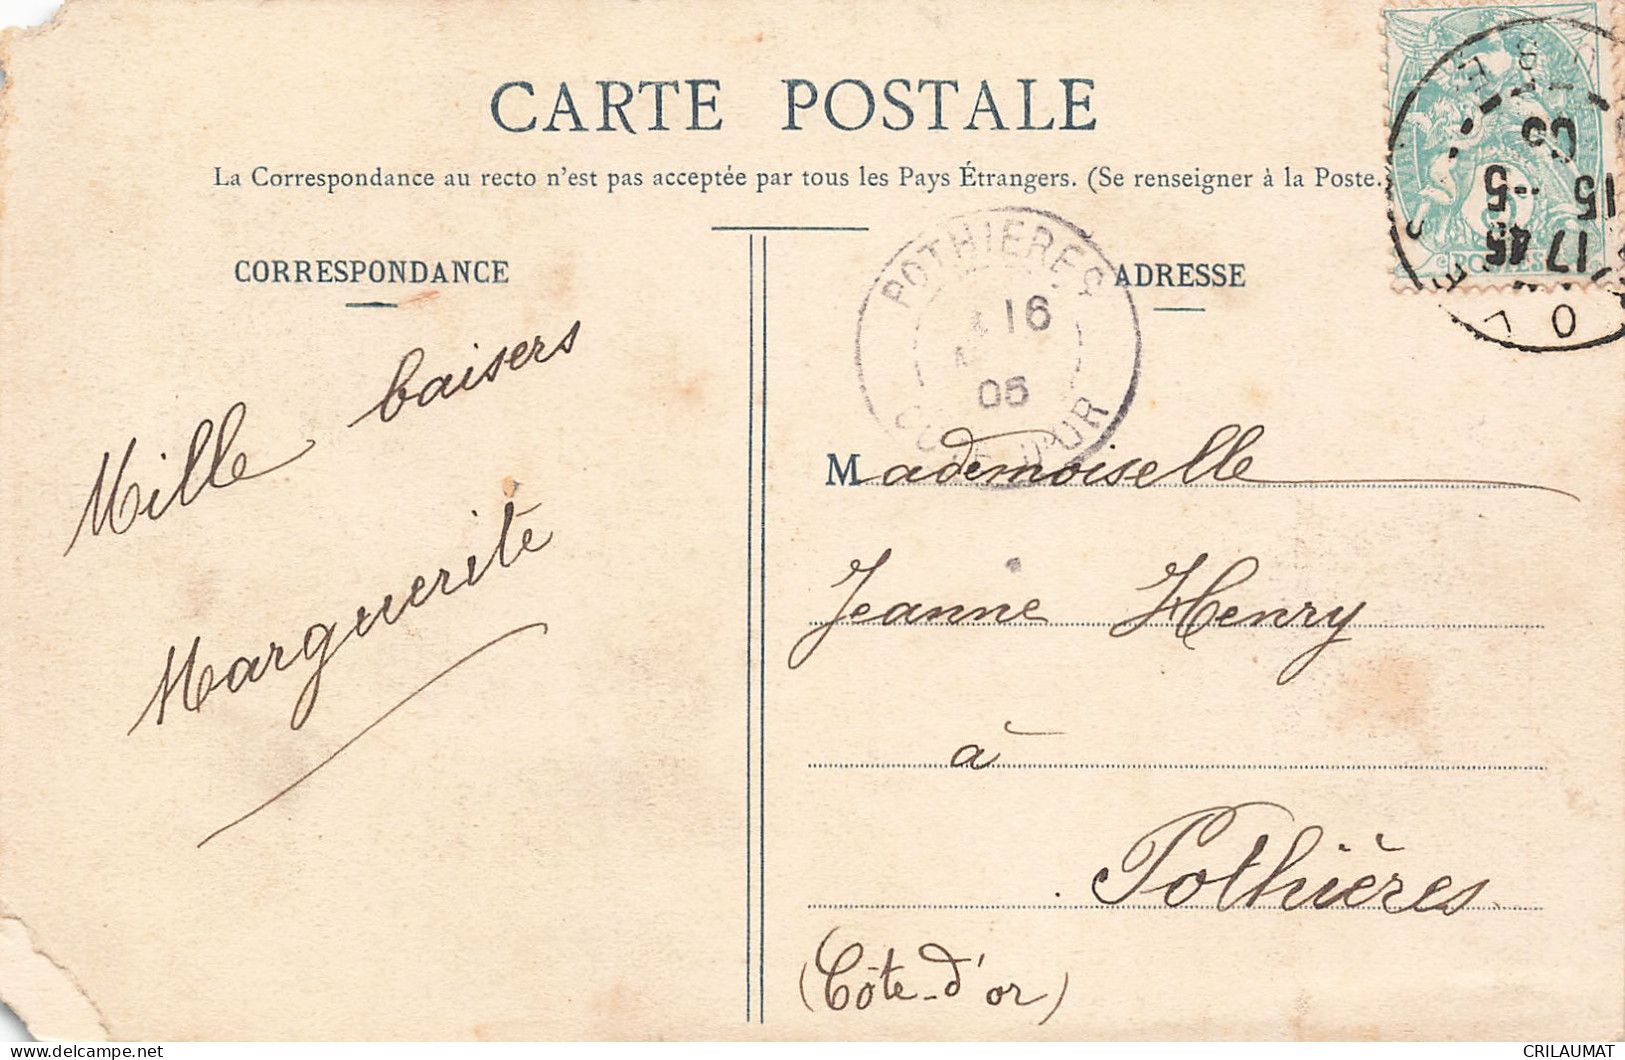 CARTE POSTALE
La Correspondance au recto n'est pas acceptée par tous les Pays Étrangers. (Se renseigner à la Poste.
CORRESPONDANCE
ADRESSE
Mille baisers
Marguerite
Mademoiselle
Jeanne Henry
à
Pothières
(Côte-d'or)
POTHIERES
16
05
COTE D'OR
17 45
15 -5
05
POSTES
CRILAUMAT